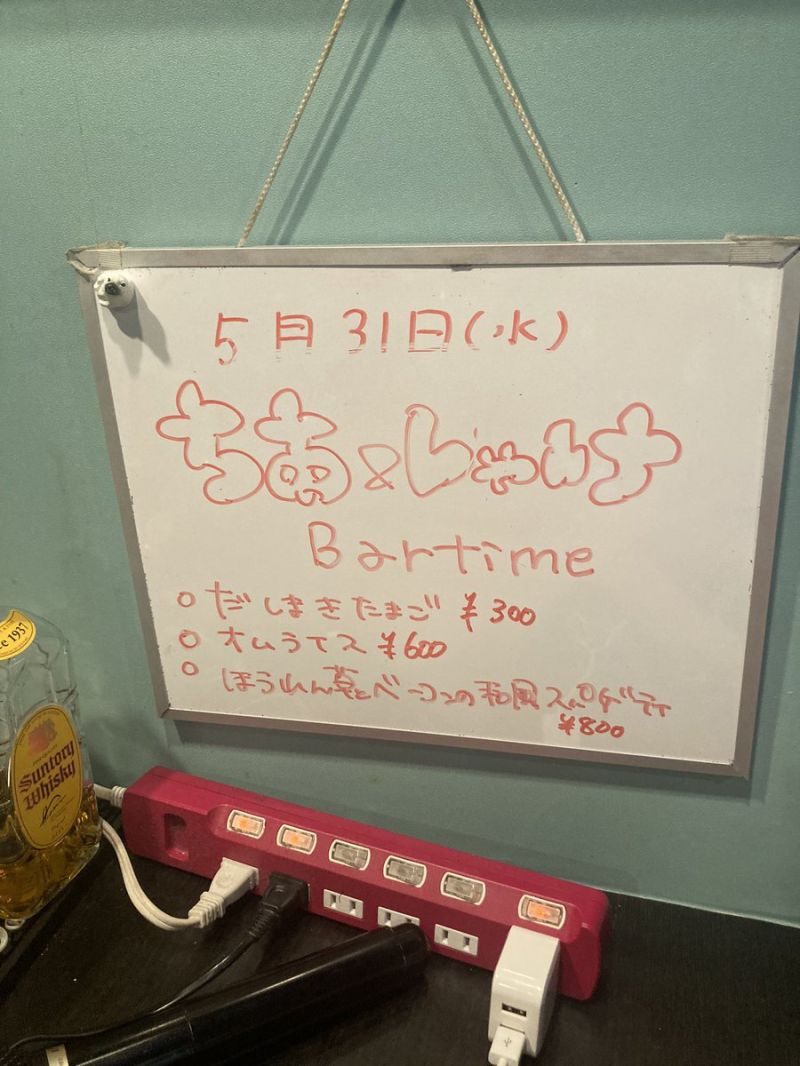 5月31日(水)
ち苗&しゅけナ
Bartime
○ だしまきたまご ¥300
○ オムライス ¥600
○ ほうれん草とベーコンの和風スパゲティ
¥800
ce 1937
Suntory
Whisky